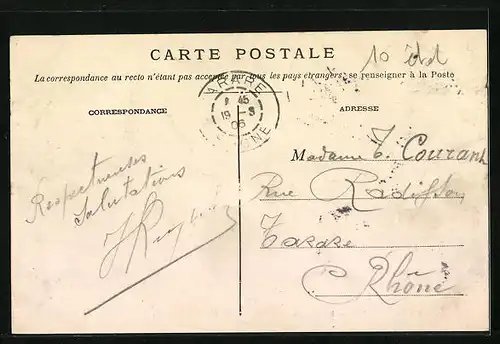 CARTE POSTALE
10
La correspondance au recto n'étant pas acceptée par tous les pays étrangers, se renseigner à la Poste
TARARE
45
19 - 5
06
RHONE
CORRESPONDANCE
ADRESSE
Respectueuses
Salutations
Madame T. Courant
Rue
Tarare
Rhône